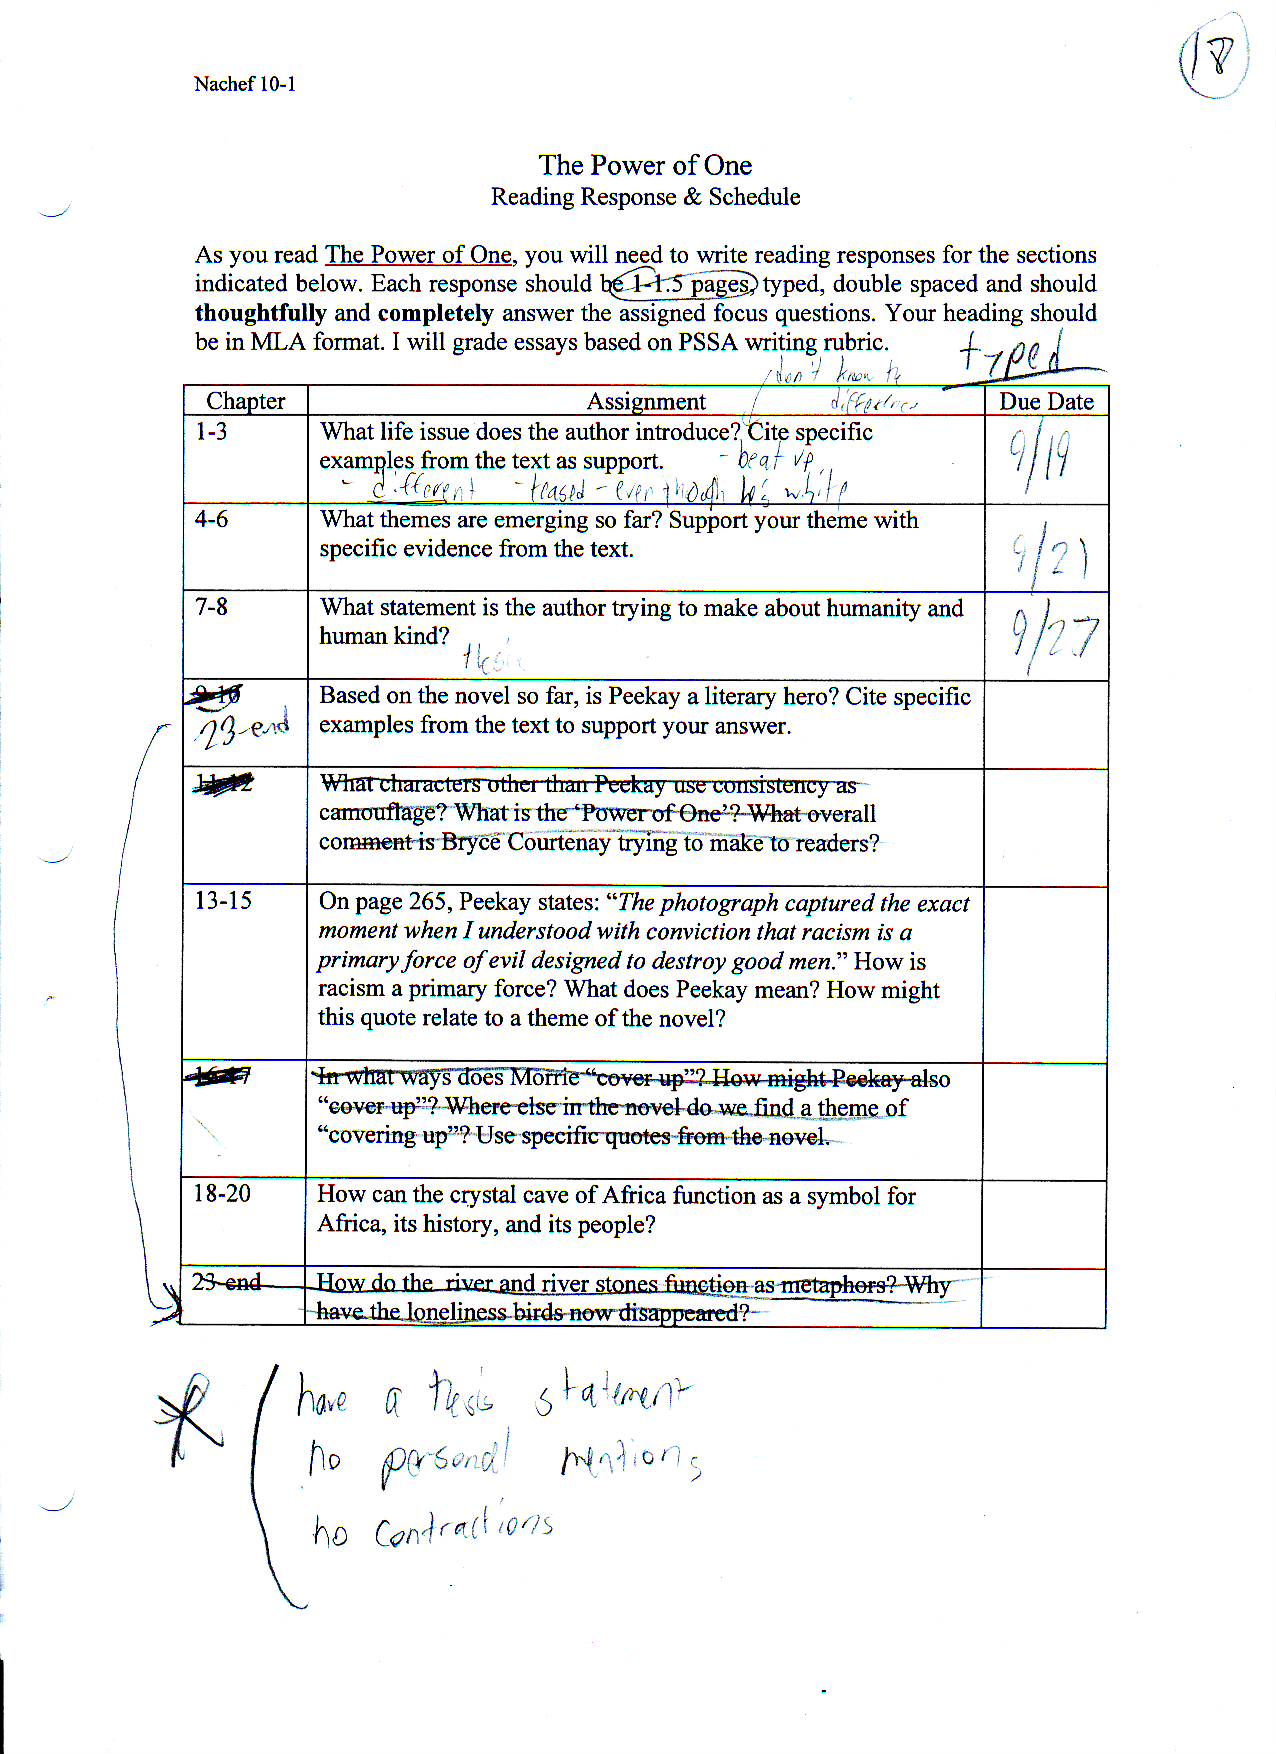 18
Nachef 10-1
The Power of One
Reading Response & Schedule
As you read The Power of One, you will need to write reading responses for the sections
indicated below. Each response should be 1-1.5 pages, typed, double spaced and should
thoughtfully and completely answer the assigned focus questions. Your heading should
be in MLA format. I will grade essays based on PSSA writing rubric.
typed
don't know the
difference
Chapter Assignment Due Date
1-3 What life issue does the author introduce? Cite specific 9/19
examples from the text as support. - beat up
- different - teased - even though he's white
4-6 What themes are emerging so far? Support your theme with 9/21
specific evidence from the text.
7-8 What statement is the author trying to make about humanity and 9/27
human kind?
thesis
9-10 Based on the novel so far, is Peekay a literary hero? Cite specific
23-end examples from the text to support your answer.
11-12 What characters other than Peekay use consistency as
camouflage? What is the ‘Power of One’? What overall
comment is Bryce Courtenay trying to make to readers?
13-15 On page 265, Peekay states: “The photograph captured the exact
moment when I understood with conviction that racism is a
primary force of evil designed to destroy good men.” How is
racism a primary force? What does Peekay mean? How might
this quote relate to a theme of the novel?
16-17 In what ways does Morrie “cover up”? How might Peekay also
“cover up”? Where else in the novel do we find a theme of
“covering up”? Use specific quotes from the novel.
18-20 How can the crystal cave of Africa function as a symbol for
Africa, its history, and its people?
23-end How do the river and river stones function as metaphors? Why
have the loneliness birds now disappeared?
have a thesis statement
no personal mentions
no contractions